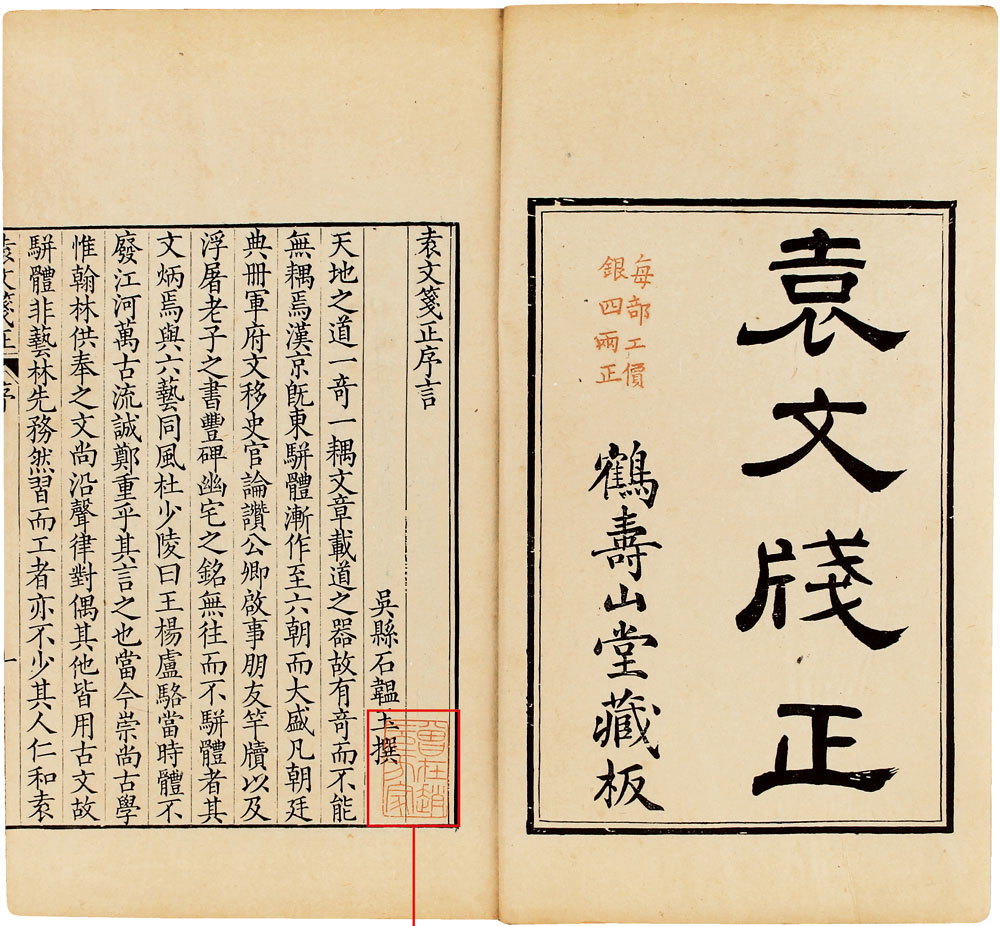 袁文牋正
每部工價
銀四兩正
鶴壽山堂藏板
袁文箋正序言
吳縣石韞玉撰
天地之道一奇一耦文章載道之器故有奇而不能
無耦焉漢京旣東駢體漸作至六朝而大盛凡朝廷
典冊軍府文移史官論讚公卿啟事朋友竿牘以及
浮屠老子之書豐碑幽宅之銘無往而不駢體者其
文炳焉與六藝同風杜少陵曰王楊盧駱當時體不
廢江河萬古流誠鄭重乎其言之也當今崇尚古學
惟翰林供奉之文尚沿聲律對偶其他皆用古文故
駢體非藝林先務然習而工者亦不少其人仁和袁
袁文箋正 序 一
曾在趙
元方家